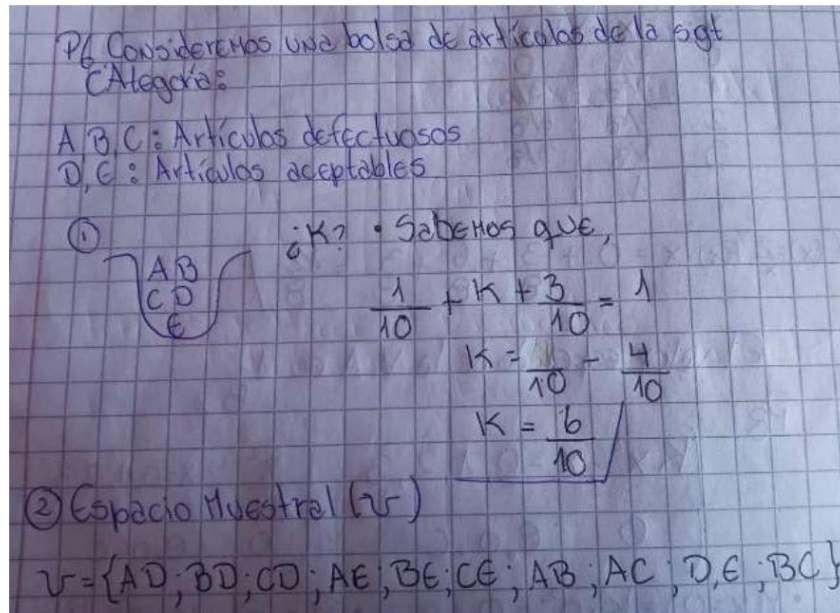 P6 Consideremos una bolsa de artículos de la sgt
Categoría:
A, B, C: Artículos defectuosos
D, E: Artículos aceptables
① ¿K? • Sabemos que,
A B
C D
E
1/10 + K + 3/10 = 1
K = 1/10 - 4/10
K = 6/10
② Espacio Muestral (v)
v = {AD; BD; CD; AE; BE; CE; AB; AC; D,E; BC}